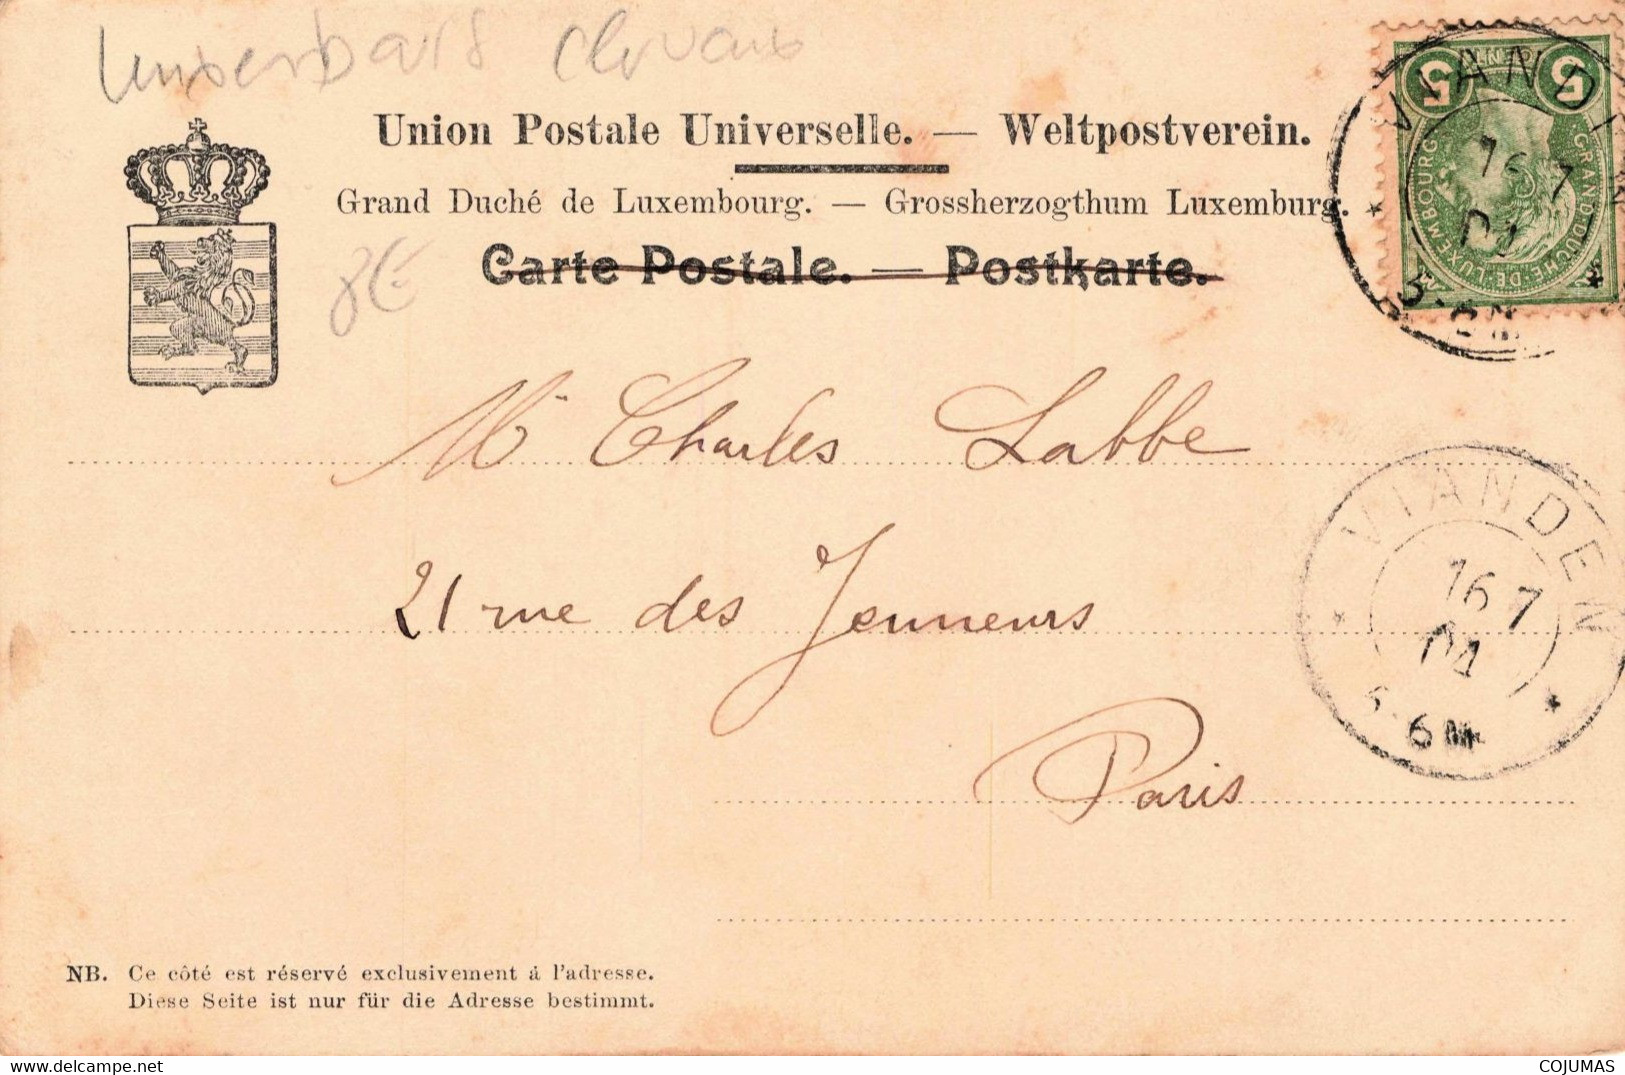 Clervaux
Union Postale Universelle. — Weltpostverein.
Grand Duché de Luxembourg. — Grossherzogthum Luxemburg.
8€
Carte Postale. — Postkarte.
VIANDEN
16 7
04
5-6N
5 CENT. 5
GRAND DUCHÉ DE LUXEMBOURG
Mr Charles Labbe
21 rue des Jeuneurs
Paris
VIANDEN
16 7
04
5-6N
NB. Ce côté est réservé exclusivement á l'adresse.
Diese Seite ist nur für die Adresse bestimmt.
COJUMAS